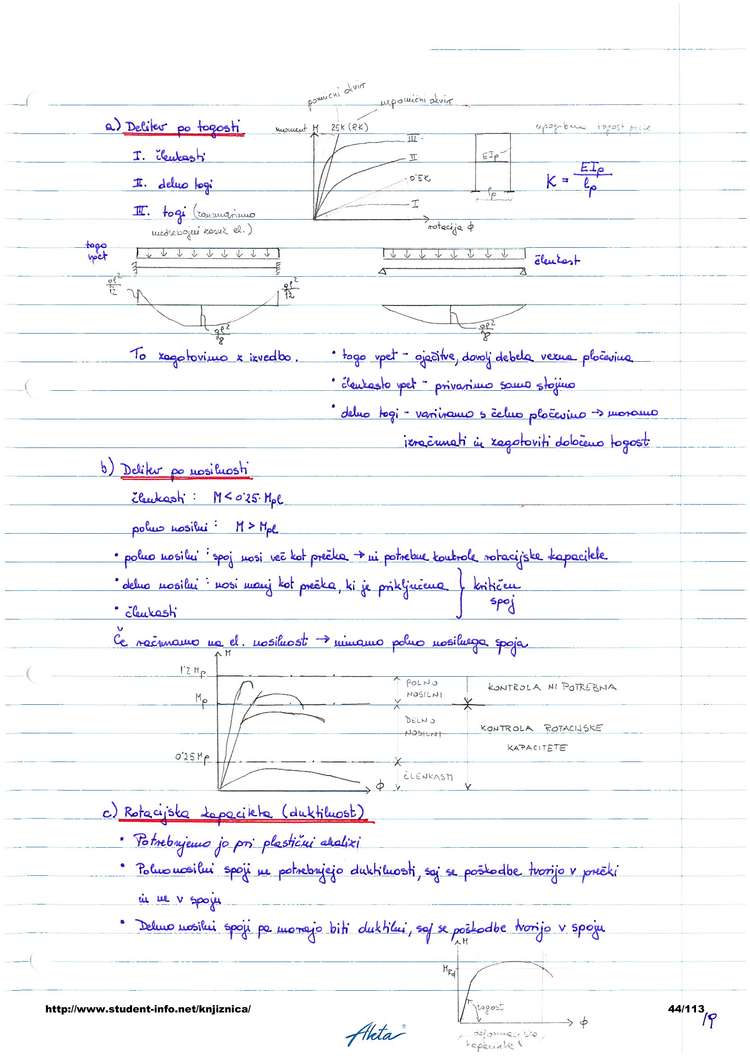 pomični okvir
nepomični okvir
a) Delitev po togosti
moment M 25K (8K)
III
II
0'5K
I
rotacija ϕ
EIp
lp
K = EIp / lp
I. členkasti
II. delno togi
III. togi (zanemarimo
medsebojni zasuk el.)
togo
vpet
členkast
ql²/12
ql²/12
ql²/8
ql²/8
To zagotovimo z izvedbo.
• togo vpet - ojačitve, dovolj debela vezna pločevina
• členkasto vpet - privarimo samo stojino
• delno togi - variiramo s čelno pločevino → moramo
izračunati in zagotoviti določeno togost
b) Delitev po nosilnosti
členkasti : M < 0'25 · Mpl
polno nosilni : M > Mpl
• polno nosilni : spoj nosi več kot prečka → ni potrebne kontrole rotacijske kapacitete
• delno nosilni : nosi manj kot prečka, ki je priključena
• členkasti
} kritičen
spoj
Če računamo na el. nosilnost → nimamo polno nosilnega spoja
M
1'2 Mp
Mp
0'25 Mp
ϕ
POLNO
NOSILNI
KONTROLA NI POTREBNA
DELNO
NOSILNI
KONTROLA ROTACIJSKE
KAPACITETE
ČLENKASTI
c) Rotacijska kapaciteta (duktilnost)
• Potrebujemo jo pri plastični analizi
• Polnonosilni spoji ne potrebujejo duktilnosti, saj se poškodbe tvorijo v prečki
in ne v spoju
• Delno nosilni spoji pa morajo biti duktilni, saj se poškodbe tvorijo v spoju
M
MRd
togost
ϕ
deformacijska
kapaciteta
http://www.student-info.net/knjiznica/
44/113
19
Akta